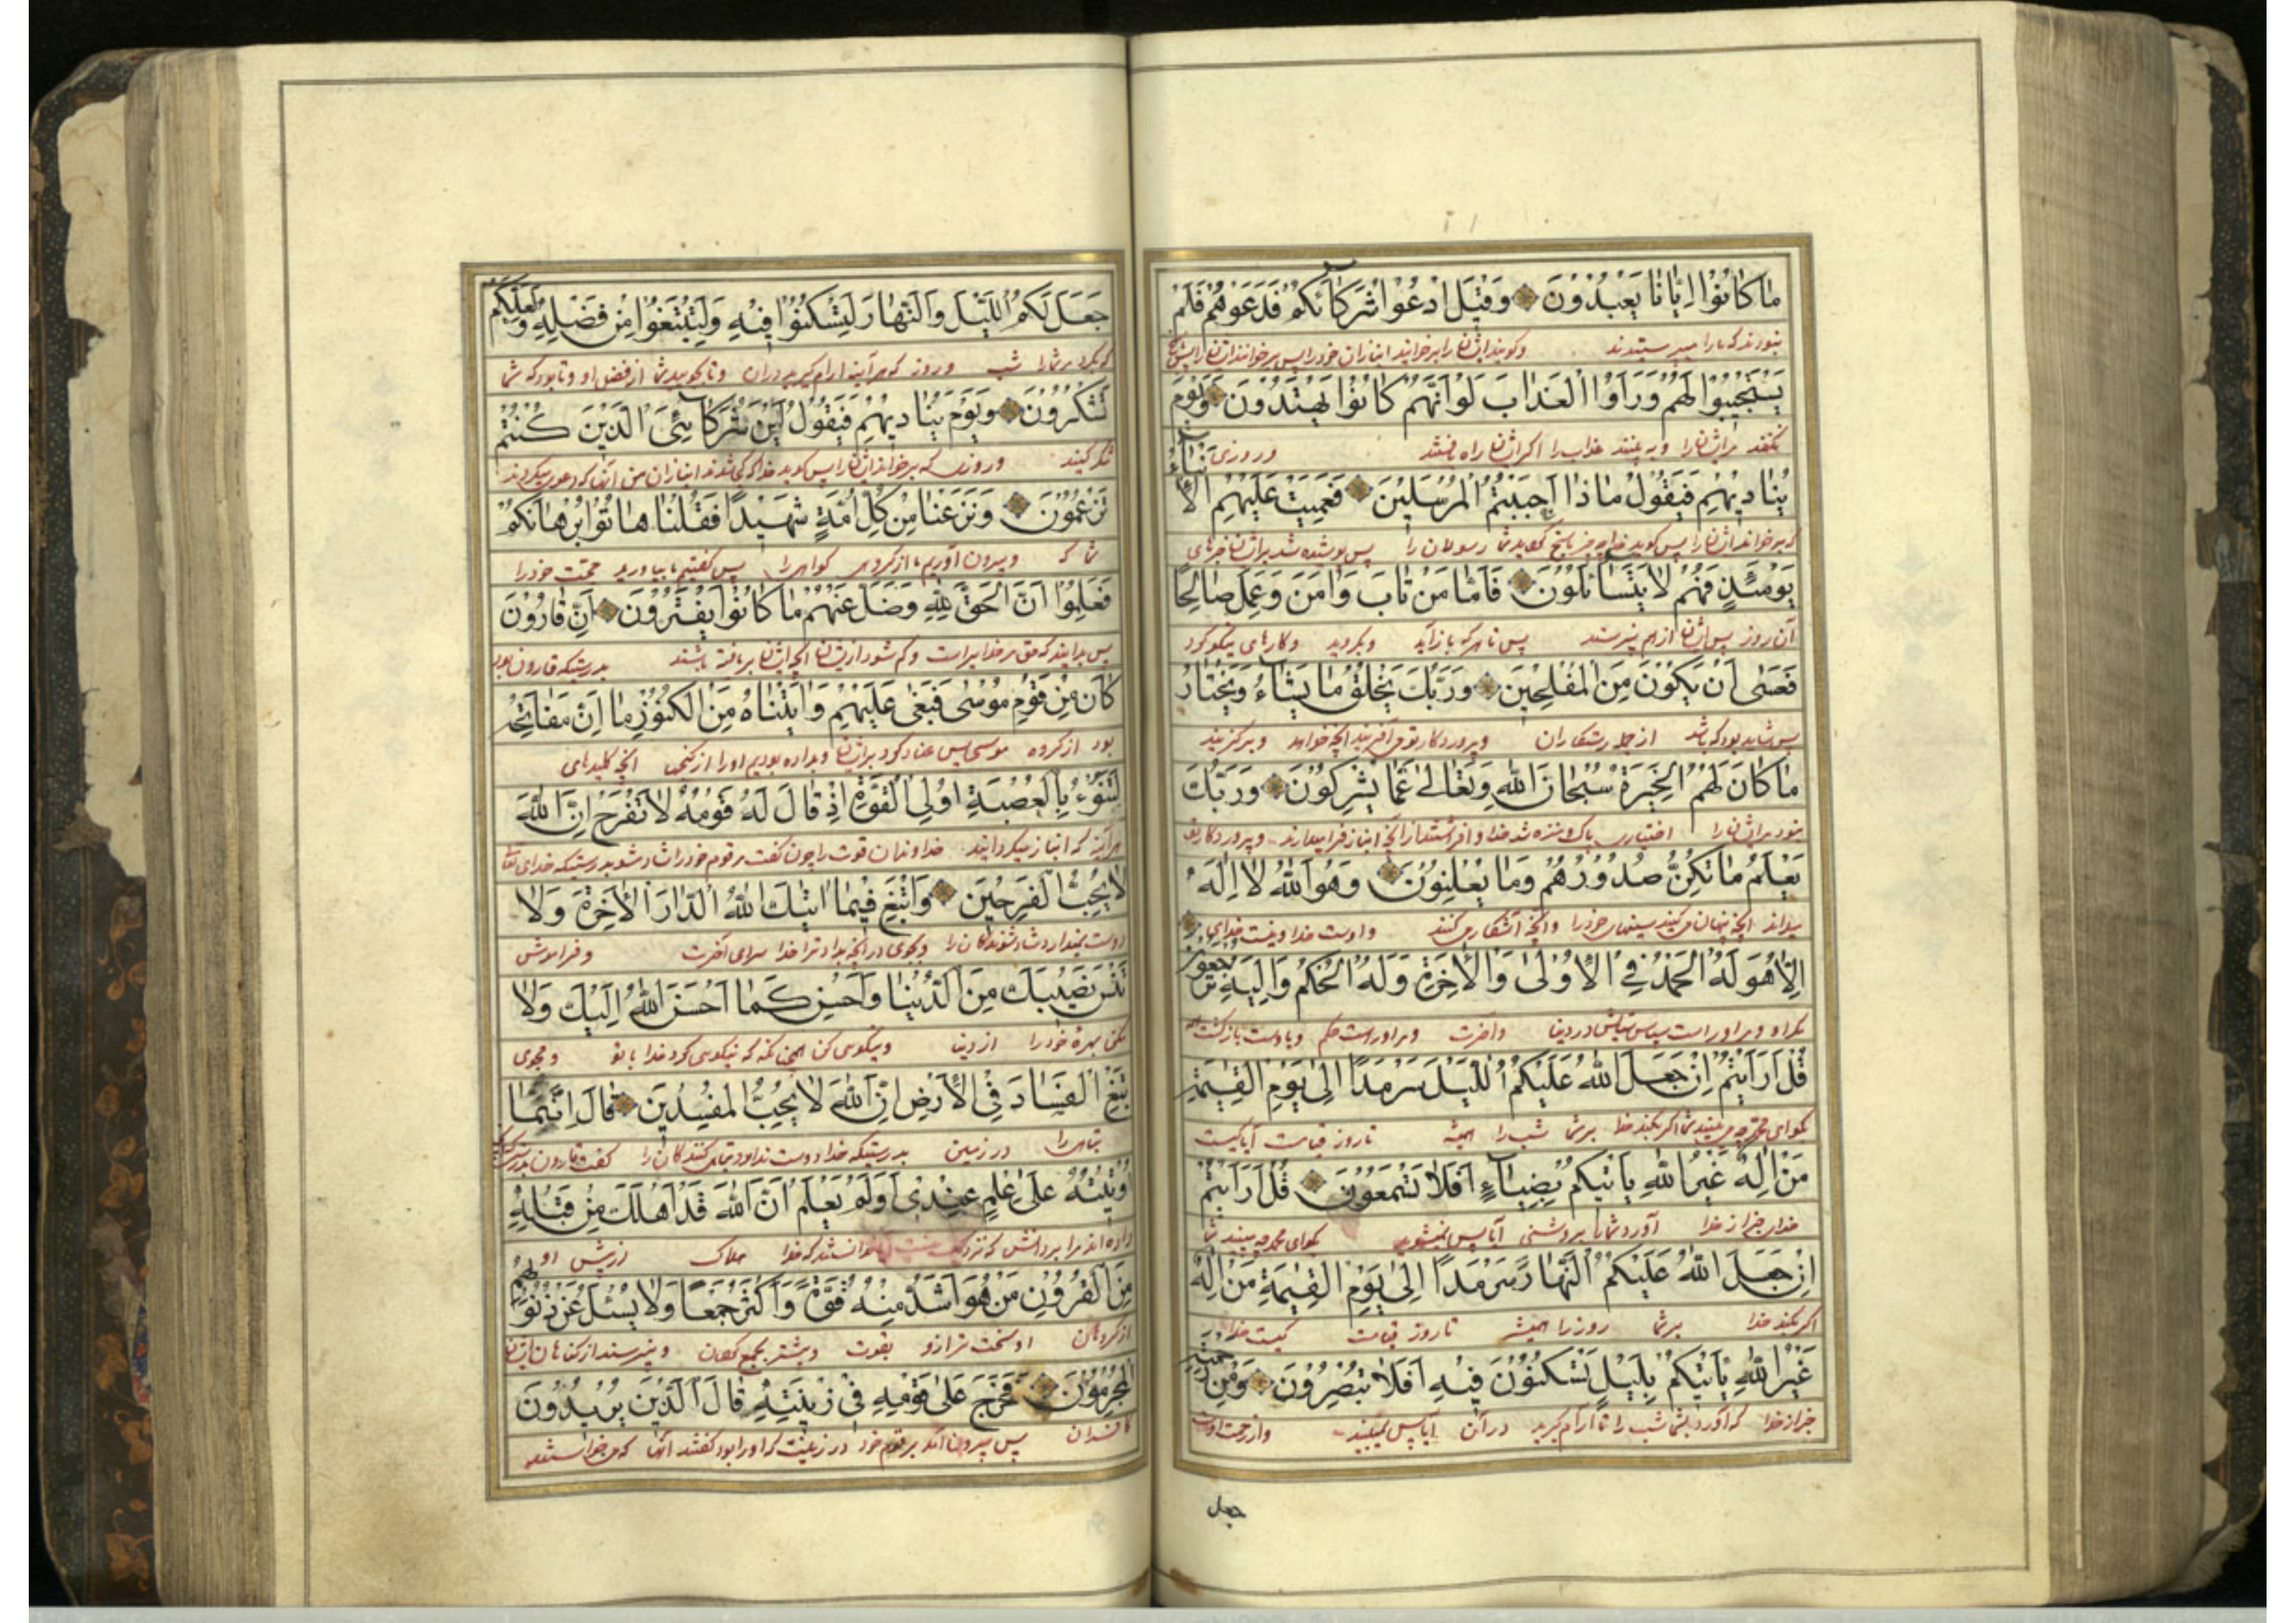 مَا كَانُوا اِيَّانَا يَعْبُدُونَ وَقِيلَ ادْعُوا شُرَكَآءَكُمْ فَدَعَوْهُمْ فَلَمْ
نبودند که ما را میپرستیدند وکویند ایشانرا بر خوانید انبازان خود را پس بر خوانند ایشانرا پس
يَسْتَجِيبُوا لَهُمْ وَرَاَوُا الْعَذَابَ لَوْ اَنَّهُمْ كَانُوا يَهْتَدُونَ وَيَوْمَ
ایشانرا وبه بینند عذاب را اکر ایشان راه یافتند وروزی
يُنَادِيهِمْ فَيَقُولُ مَاذَا اَجَبْتُمُ الْمُرْسَلِينَ فَعَمِيَتْ عَلَيْهِمُ الْاَنْبَآءُ
که بر خواند ایشانرا پس کوید خدا چه چیز پاسخ شما رسولان را پس پوشیده شد بر ایشان خبرهای
يَوْمَئِذٍ فَهُمْ لَا يَتَسَآئَلُونَ فَاَمَّا مَنْ تَابَ وَاٰمَنَ وَعَمِلَ صَالِحًا
آن روز پس ایشان از هم نپرسند پس هرکه باز آید وبکروید وکارهای نیکو کرد
فَعَسٰى اَنْ يَكُونَ مِنَ الْمُفْلِحِينَ وَرَبُّكَ يَخْلُقُ مَا يَشَآءُ وَيَخْتَارُ
پس شاید بود که باشد از جمله رستکاران وپروردکار تو می آفریند آنچه خواهد وبرکزیند
مَا كَانَ لَهُمُ الْخِيَرَةُ سُبْحَانَ اللّٰهِ وَتَعَالٰى عَمَّا يُشْرِكُونَ وَرَبُّكَ
نبود برایشانرا اختیاری پاک ومنزه شد خدا از آنچه انباز فرا میدارند وپروردکار تو
يَعْلَمُ مَا تُكِنُّ صُدُورُهُمْ وَمَا يُعْلِنُونَ وَهُوَ اللّٰهُ لَا اِلٰهَ
میداند آنچه پنهان می کنند سینهای خود را وآنچه آشکارا می کنند واوست خدا ونیست خدای
اِلَّا هُوَ لَهُ الْحَمْدُ فِي الْاُولٰى وَالْاٰخِرَةِ وَلَهُ الْحُكْمُ وَاِلَيْهِ تُرْجَعُونَ
مکر او ومر او راست سپاس وستایش در دنیا وآخرت ومر او راست حکم وباوست بازکشت
قُلْ اَرَاَيْتُمْ اِنْ جَعَلَ اللّٰهُ عَلَيْكُمُ اللَّيْلَ سَرْمَدًا اِلٰى يَوْمِ الْقِيٰمَةِ
بکو ای محمد چه می بینید شما اکر بکند خدا بر شما شب را همیشه تا روز قیامت آیا کیست
مَنْ اِلٰهٌ غَيْرُ اللّٰهِ يَاْتِيكُمْ بِضِيَآءٍ اَفَلَا تَسْمَعُونَ قُلْ اَرَاَيْتُمْ
خدای جز از خدا آورد شما را بروشنی آیا پس نمیشوید بکو ای محمد چه بینید شما
اِنْ جَعَلَ اللّٰهُ عَلَيْكُمُ النَّهَارَ سَرْمَدًا اِلٰى يَوْمِ الْقِيٰمَةِ مَنْ اِلٰهٌ
اکر بکند خدا بر شما روز را همیشه تا روز قیامت کیست خدا
غَيْرُ اللّٰهِ يَاْتِيكُمْ بِلَيْلٍ تَسْكُنُونَ فِيهِ اَفَلَا تُبْصِرُونَ وَمِنْ رَحْمَتِهِ
جز از خدا که آورد بشما شب را تا آرام کیرید در آن آیا پس نمیبینید واز رحمت اوست
جعل
جَعَلَ لَكُمُ اللَّيْلَ وَالنَّهَارَ لِتَسْكُنُوا فِيهِ وَلِتَبْتَغُوا مِنْ فَضْلِهِ وَلَعَلَّكُمْ
که بکرد بر شما را شب وروز که هر آینه آرام کیرید در آن وتا بجویید شما از فضل او وتا بود که شما
تَشْكُرُونَ وَيَوْمَ يُنَادِيهِمْ فَيَقُولُ اَيْنَ شُرَكَآئِيَ الَّذِينَ كُنْتُمْ
شکر کنید وروزی که بر خواند ایشانرا پس کوید خدا که کجا شدند انبازان من آنها که دعوی میکردند
تَزْعُمُونَ وَنَزَعْنَا مِنْ كُلِّ اُمَّةٍ شَهِيدًا فَقُلْنَا هَاتُوا بُرْهَانَكُمْ
شما که وبیرون آوریم ما از کروهی کواهی را پس کفتیم ما بیاورید حجت خود را
فَعَلِمُوا اَنَّ الْحَقَّ لِلّٰهِ وَضَلَّ عَنْهُمْ مَا كَانُوا يَفْتَرُونَ اِنَّ قَارُونَ
پس بدانید که حق مر خدا یراست وکم شود از ایشان آنچه ایشان بر بافته باشند بدرستیکه قارون بود
كَانَ مِنْ قَوْمِ مُوسٰى فَبَغٰى عَلَيْهِمْ وَاٰتَيْنَاهُ مِنَ الْكُنُوزِ مَا اِنَّ مَفَاتِحَهُ
بود از کروه موسی پس عناد کرد بر ایشان وداده بودیم او را از کنجها آنچه کلیدهای
لَتَنُوءُ بِالْعُصْبَةِ اُولِي الْقُوَّةِ اِذْ قَالَ لَهُ قَوْمُهُ لَا تَفْرَحْ اِنَّ اللّٰهَ
هر آینه خداوندان قوت را چون کفت مر قوم خود را شاد مشو بدرستیکه خدای تعالی
لَا يُحِبُّ الْفَرِحِينَ وَابْتَغِ فِيمَا اٰتٰيكَ اللّٰهُ الدَّارَ الْاٰخِرَةَ وَلَا
دوست نمیدارد شاد شوندکان را وبجوی در آنچه بداد ترا خدا سرای آخرت وفراموش
تَنْسَ نَصِيبَكَ مِنَ الدُّنْيَا وَاَحْسِنْ كَمَا اَحْسَنَ اللّٰهُ اِلَيْكَ وَلَا
مکن بهره خود را از دنیا ونیکوی کن همچنانکه که نیکوی کرد خدا با تو ومجوی
تَبْغِ الْفَسَادَ فِي الْاَرْضِ اِنَّ اللّٰهَ لَا يُحِبُّ الْمُفْسِدِينَ قَالَ اِنَّمَا
تباهی را در زمین بدرستیکه خدا دوست ندارد تباه کنندکان را کفت قارون بدرستیکه
اُوتِيتُهُ عَلٰى عِلْمٍ عِنْدِي اَوَلَمْ يَعْلَمْ اَنَّ اللّٰهَ قَدْ اَهْلَكَ مِنْ قَبْلِهِ
داده اند مرا بر دانش که نزد که خدا هلاک از پیش او
مِنَ الْقُرُونِ مَنْ هُوَ اَشَدُّ مِنْهُ قُوَّةً وَاَكْثَرُ جَمْعًا وَلَا يُسْئَلُ عَنْ ذُنُوبِهِمُ
از کروهان او سخت تر از و بقوت وبیشتر بجمع ونپرسند از کناهان ایشان
الْمُجْرِمُونَ فَخَرَجَ عَلٰى قَوْمِهِ فِي زِينَتِهِ قَالَ الَّذِينَ يُرِيدُونَ
کافران پس بیرون آمد بر قوم خود در زینت که او را بود کفتند آنها که می خواستند